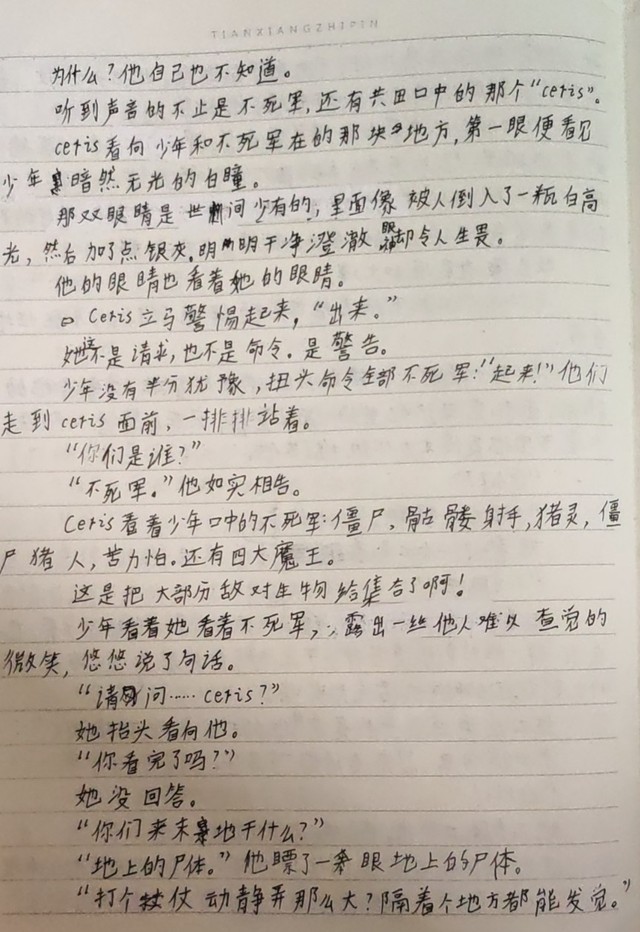 TIANXIANGZHIPIN
为什么？他自己也不知道。
听到声音的不止是不死军，还有其口中的那个“ceris”。
ceris看向少年和不死军在的那块地方，第一眼便看见
少年暗然无光的白瞳。
那双眼睛是世间少有的，里面像被人倒入了一瓶白高
光，然后加了点银灰。明明干净澄澈却令人生畏。
他的眼睛也看着她的眼睛。
Ceris立马警惕起来，“出来。”
她这不是请求，也不是命令。是警告。
少年没有半分犹豫，扭头命令全部不死军：“起来！”他们
走到ceris面前，一排排站着。
“你们是谁？”
“不死军。”他如实相告。
Ceris看着少年口中的不死军：僵尸，骷髅射手，猪灵，僵
尸猪人，苦力怕。还有四大魔王。
这是把大部分敌对生物给集合了啊！
少年看着她看着不死军，露出一丝他人难以查觉的
微笑，悠悠说了句话。
“请问……ceris？”
她抬头看向他。
“你看完了吗？”
她没回答。
“你们来末地干什么？”
“地上的尸体。”他瞟了一眼地上的尸体。
“打个仗动静弄那么大？隔着个地方都能发觉。”